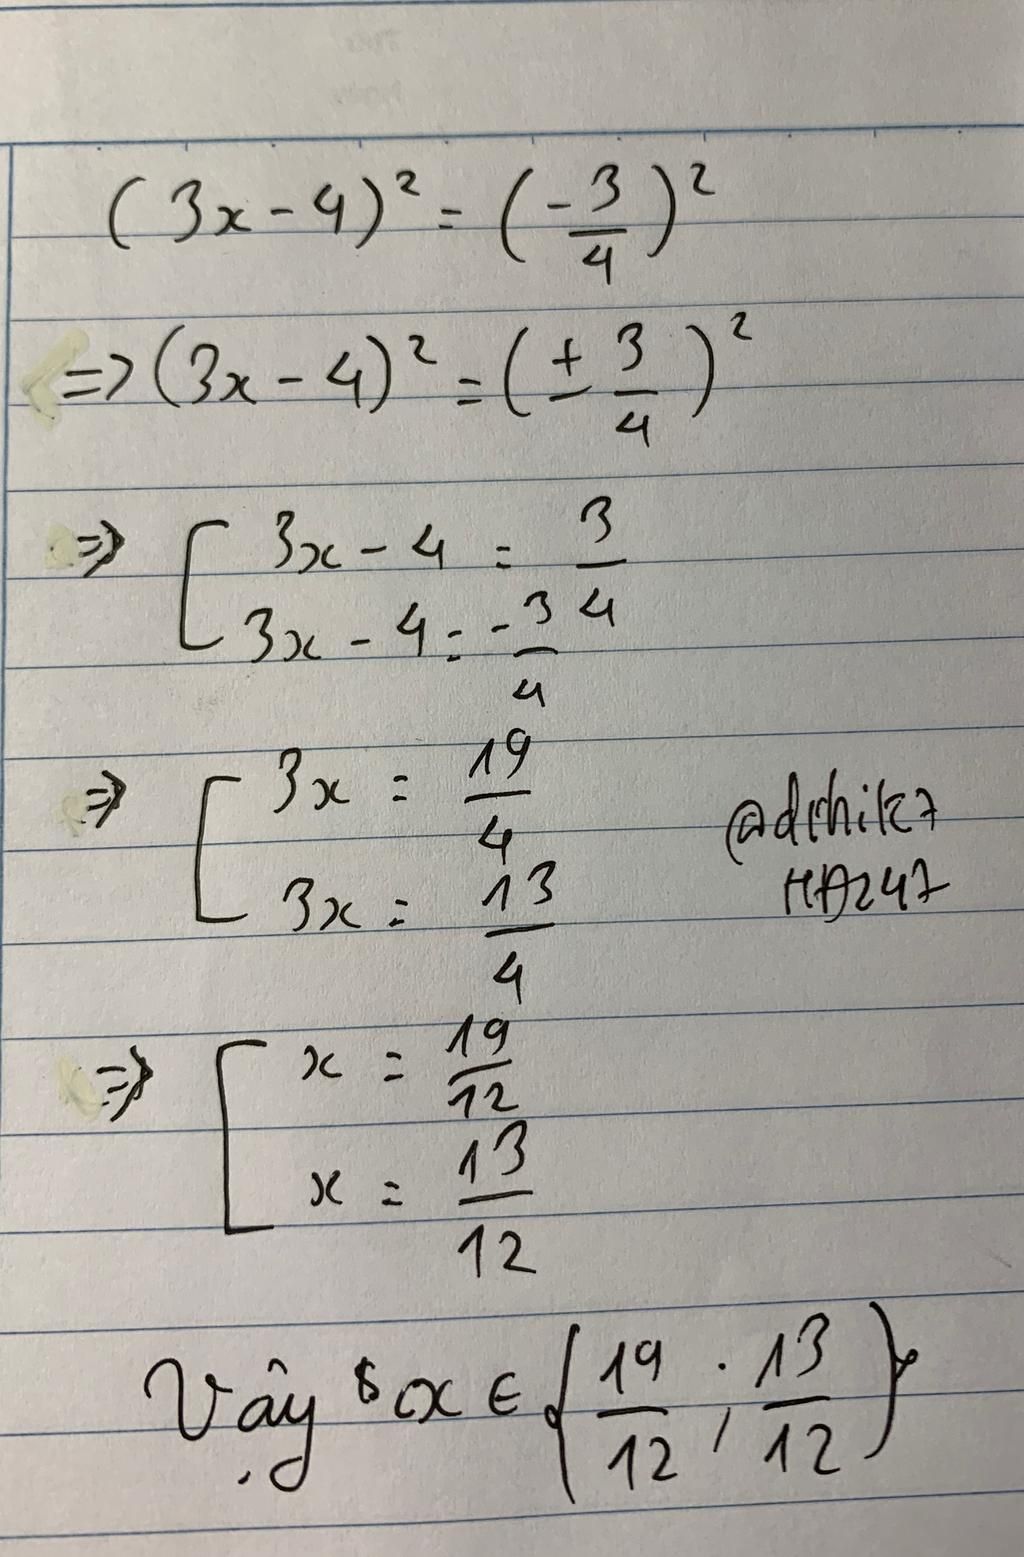 (3x - 4)² = (-3/4)²
=> (3x - 4)² = (± 3/4)²
=> [ 3x - 4 = 3/4
3x - 4 = -3/4
=> [ 3x = 19/4
3x = 13/4
@dchik7
HD247
=> [ x = 19/12
x = 13/12
Vậy x ∈ {19/12 ; 13/12}